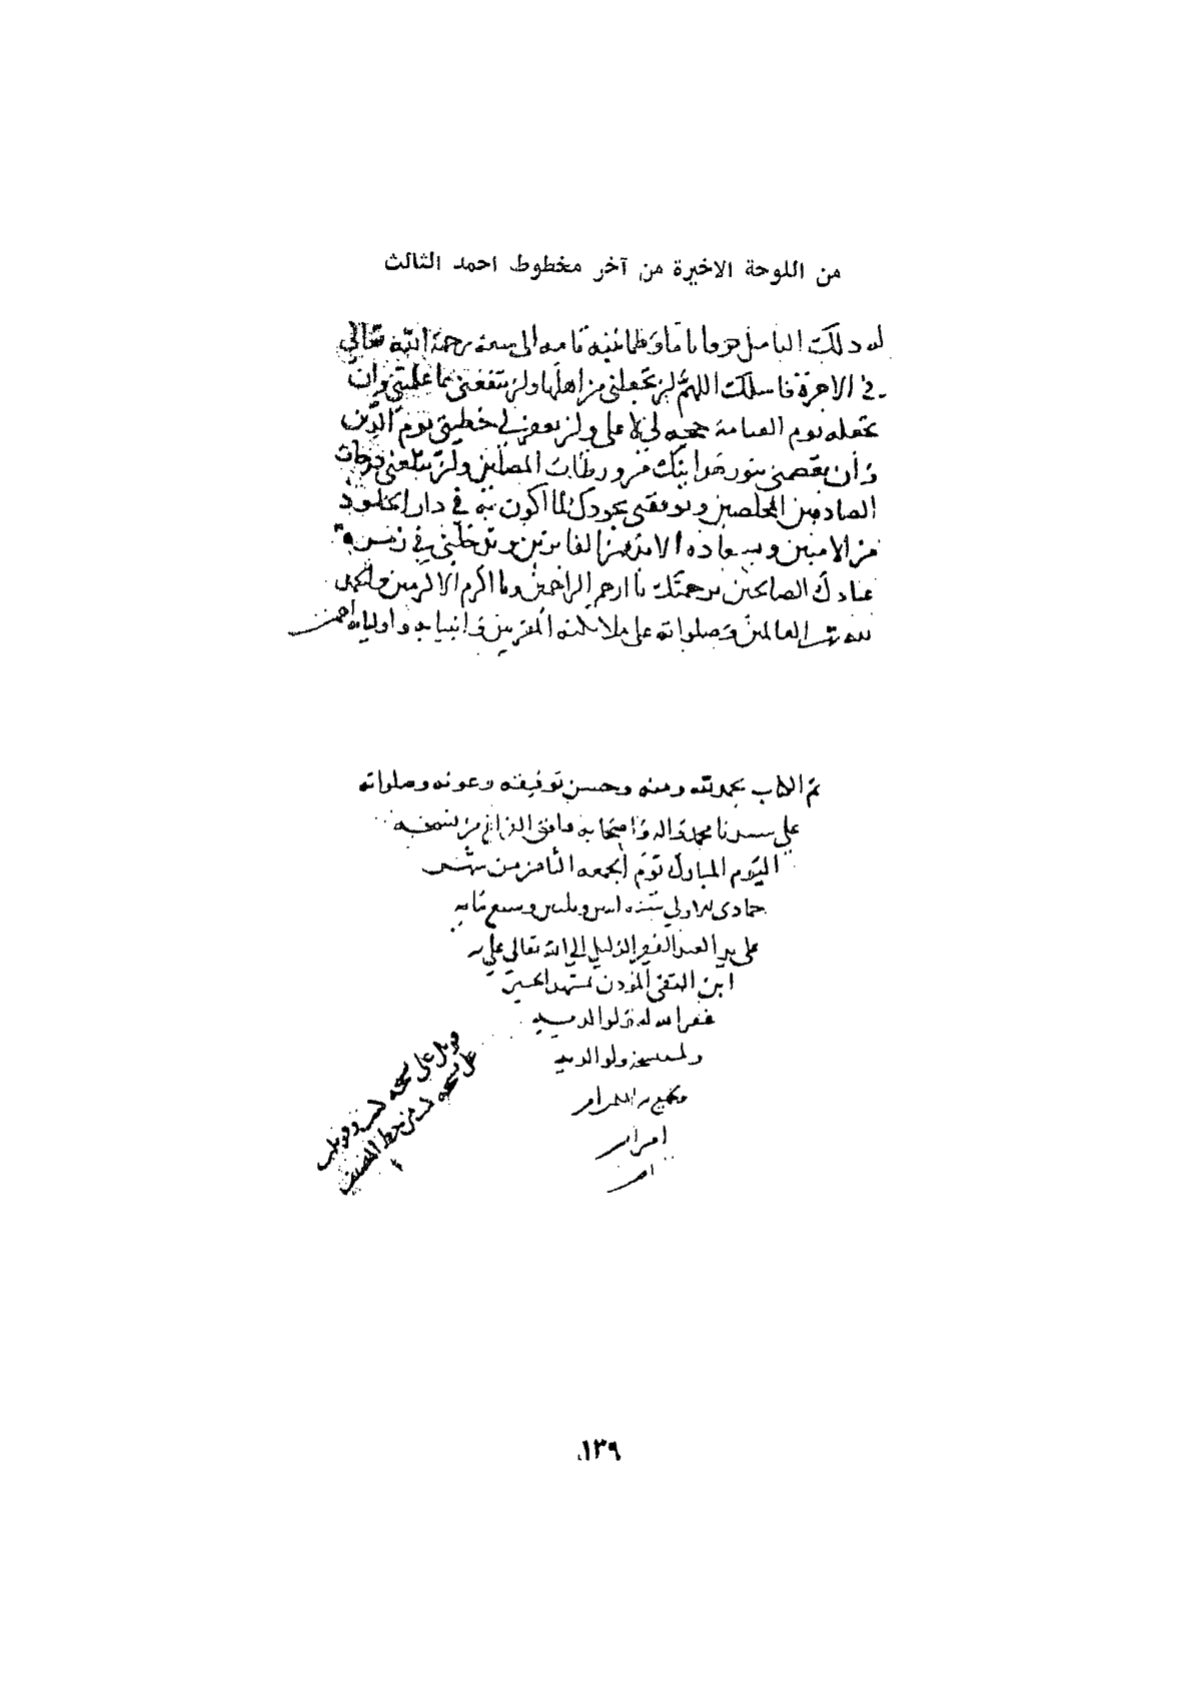 من اللوحة الاخيرة من آخر مخطوط احمد الثالث
له ذلك التأمل خوفا تاما وطمأنينة تامه الى سعة رحمة الله تعالى
في الاخرة فاسلك اللهم ان تجعلني من اهلها وان تنفعني بما علمتني وان
تجعله يوم القيامة حجة لي لا علي وان تغفر لي خطيئتي يوم الدين
وأن تعصمني بنور هدايتك من ورطات المضلين وان تبلغني درجات
الصادقين المخلصين وتوفقني بجودك لما اكون به في دار الخلود
من الامنين وبسعادة الابد من الفائزين وتدخلني في زمرة
عبادك الصالحين برحمتك يا ارحم الراحمين ويا اكرم الاكرمين والحمد
لله رب العالمين وصلواته على ملائكته المقربين وانبيائه واوليائه اجمعين
تم الكتاب بحمد الله ومنه وحسن توفيقه وعونه وصلواته
على سيدنا محمد واله واصحابه وافق الفراغ من نسخه
اليوم المبارك يوم الجمعه الثامن من شهر
جمادى الاولي سنة اثنين وثلثين وسبع مايه
على يد العبد الفقير الذليل الي الله تعالى علي
ابن التقي المؤذن بمشهد الحسين
غفر الله له ولوالديه
ولمستنسخه ولوالديه
ولجميع
امين
امين
قوبل علي نسخه وقوبلت
علي نسخه من خط المصنف
١٣٩